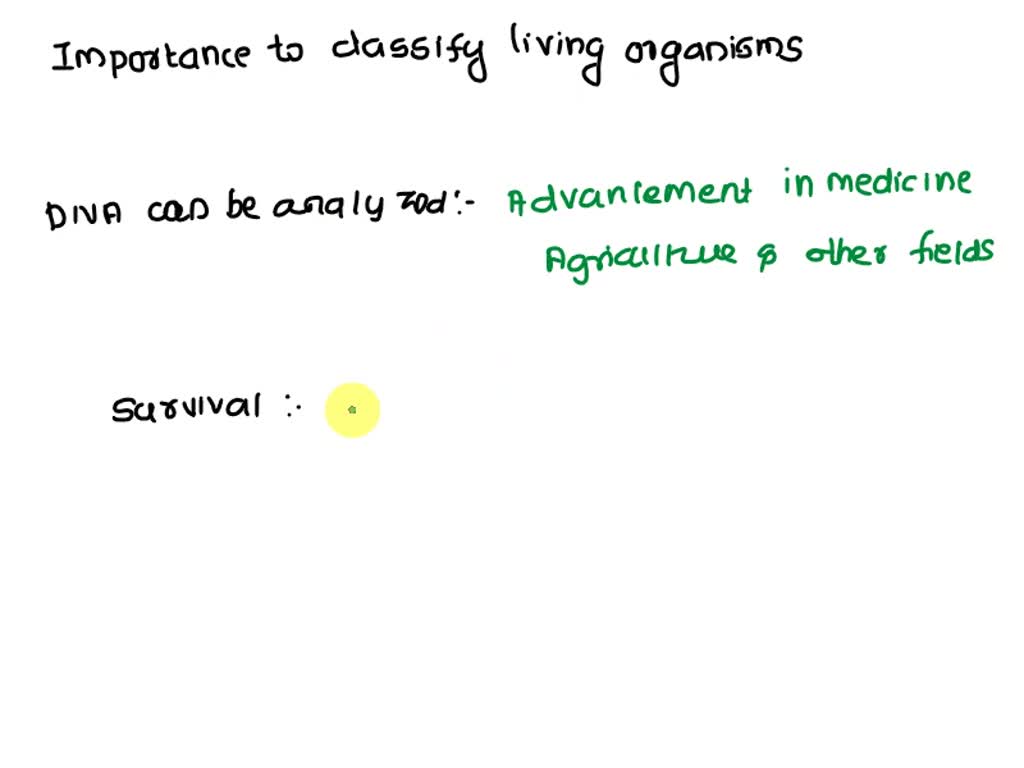 Importance to classify living organisms
DNA can be analyzod:- Advancement in medicine
Agriculture & other fields
Survival :-